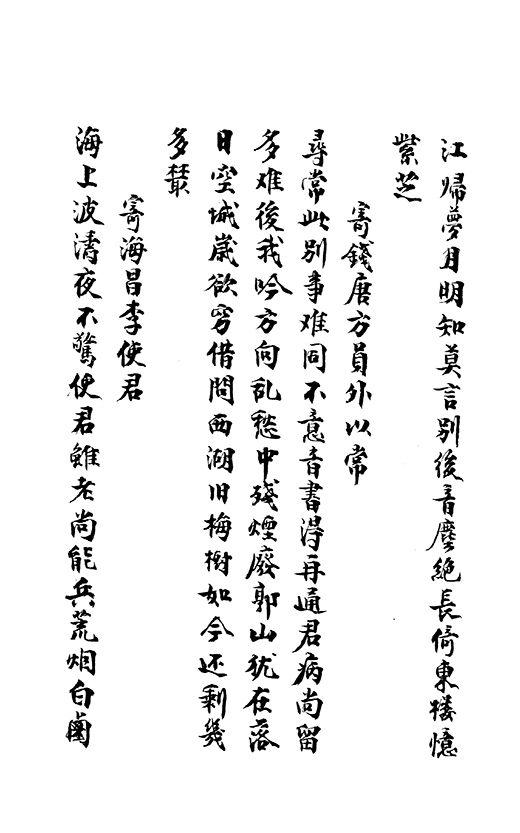 江歸夢月明知莫言別後音塵絶長倚東樓憶
紫芝
寄錢唐方員外以常
尋常此別事难同不意音書得再通君病尚留
多难後我吟方向乱愁中殘煙廢郭山犹在落
日空城歲欲窮借問西湖旧梅樹如今还剩幾
多藂
寄海昌李使君
海上波濤夜不驚使君雖老尚能兵荒烟白鹵